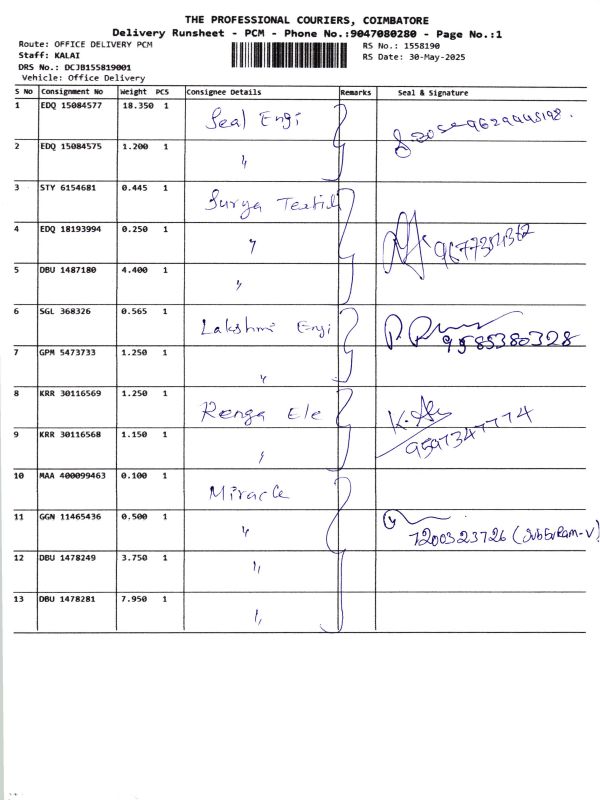 THE PROFESSIONAL COURIERS, COIMBATORE
Delivery Runsheet - PCM - Phone No.:9047080280 - Page No.:1
Route: OFFICE DELIVERY PCM
Staff: KALAI
DRS No.: DCJB155819001
Vehicle: Office Delivery
RS No.: 1558190
RS Date: 30-May-2025
S No Consignment No Weight PCS Consignee Details Remarks Seal & Signature
1 EDQ 15084577 18.350 1 Seal Engi
2 EDQ 15084575 1.200 1 "
3 STY 6154681 0.445 1 Surya Textil
4 EDQ 18193994 0.250 1 "
5 DBU 1487180 4.400 1 "
6 SGL 368326 0.565 1 Lakshmi Engi
9585380328
7 GPM 5473733 1.250 1 "
8 KRR 30116569 1.250 1 Renga Ele
9597347774
9 KRR 30116568 1.150 1 "
10 MAA 400099463 0.100 1 Miracle
11 GGN 11465436 0.500 1 "
7200323726
12 DBU 1478249 3.750 1 "
13 DBU 1478281 7.950 1 "